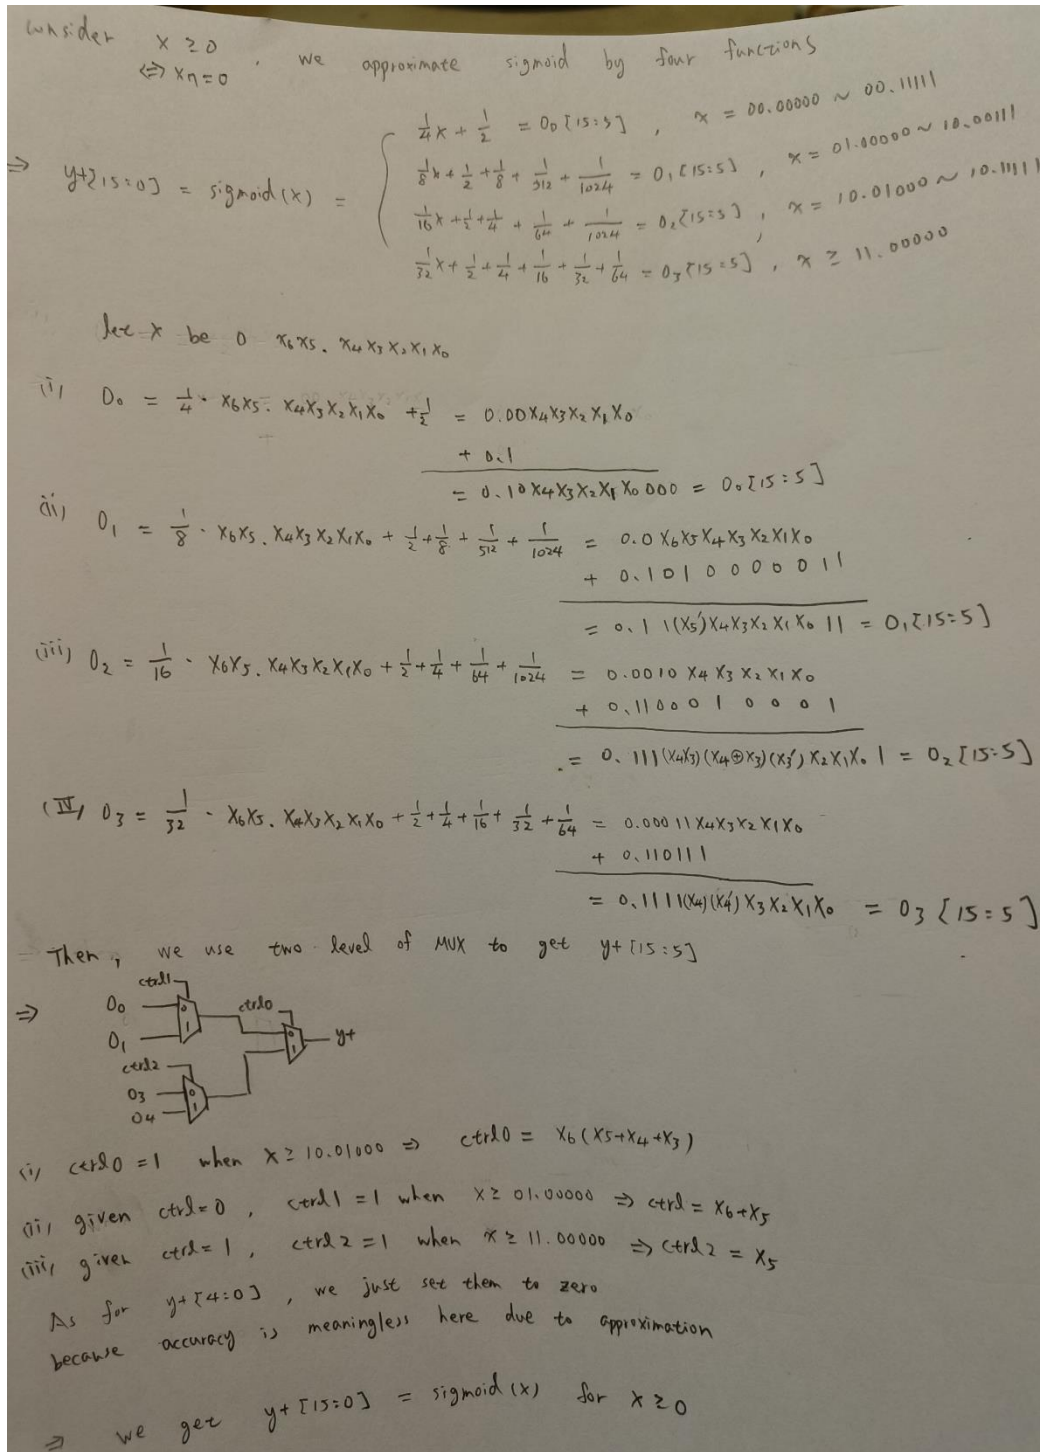 Consider x ≥ 0 , we approximate sigmoid by four functions
⇔ x7=0
⇒ y+[15:0] = sigmoid(x) = { 1/4 x + 1/2 = O0[15:5] , x = 00.00000 ~ 00.11111
1/8 x + 1/2 + 1/8 + 1/512 + 1/1024 = O1[15:5] , x = 01.00000 ~ 10.00111
1/16 x + 1/2 + 1/4 + 1/64 + 1/1024 = O2[15:5] , x = 10.01000 ~ 10.11111
1/32 x + 1/2 + 1/4 + 1/16 + 1/32 + 1/64 = O3[15:5] , x ≥ 11.00000
let x be 0 x6x5.x4x3x2x1x0
(i) O0 = 1/4 · x6x5.x4x3x2x1x0 + 1/2 = 0.00x4x3x2x1x0
+ 0.1
= 0.10x4x3x2x1x0000 = O0[15:5]
(ii) O1 = 1/8 · x6x5.x4x3x2x1x0 + 1/2 + 1/8 + 1/512 + 1/1024 = 0.0x6x5x4x3x2x1x0
+ 0.1010000011
= 0.11(x5')x4x3x2x1x011 = O1[15:5]
(iii) O2 = 1/16 · x6x5.x4x3x2x1x0 + 1/2 + 1/4 + 1/64 + 1/1024 = 0.0010x4x3x2x1x0
+ 0.1100010001
= 0.111(x4x3)(x4⊕x3)(x3')x2x1x01 = O2[15:5]
(IV) O3 = 1/32 · x6x5.x4x3x2x1x0 + 1/2 + 1/4 + 1/16 + 1/32 + 1/64 = 0.00011x4x3x2x1x0
+ 0.110111
= 0.1111(x4)(x4')x3x2x1x0 = O3[15:5]
Then, we use two level of MUX to get y+[15:5]
⇒
ctrl1
O0 0
O1 1
ctrl0
0
1
y+
ctrl2
O3 0
O4 1
(i) ctrl0 = 1 when x ≥ 10.01000 ⇒ ctrl0 = x6(x5+x4+x3)
(ii) given ctrl=0 , ctrl1 = 1 when x ≥ 01.00000 ⇒ ctrl = x6+x5
(iii) given ctrl=1 , ctrl2 = 1 when x ≥ 11.00000 ⇒ ctrl2 = x5
As for y+[4:0] , we just set them to zero
because accuracy is meaningless here due to approximation
⇒ we get y+[15:0] = sigmoid(x) for x ≥ 0